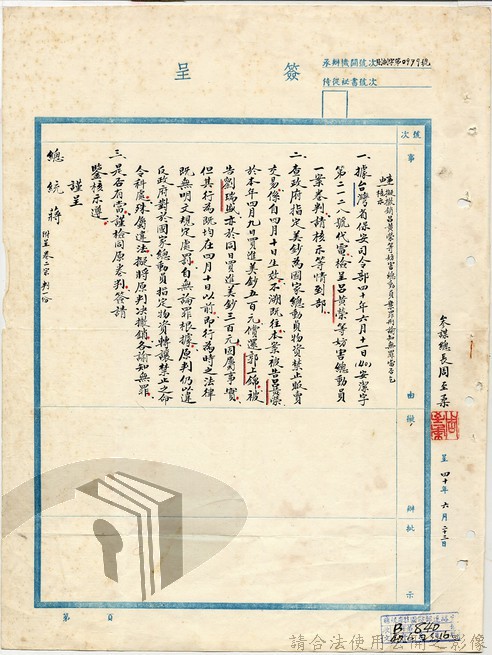 簽呈
承辦機關號次
侍從祕書號次
摘次
事由
擬辦
批示
一、據台灣省保安司令部四十年六月十一日(40)安潔字
第二一二八號代電檢呈呂黃榮等妨害總動員
一案卷判請核示等情到部
二、查政府指定美鈔為國家總動員物資禁止買賣
交易係自四月十日生效不溯既往本案被告呂黃榮
於本年四月九日買進美鈔五百元價還郭上錦被
告劉瑞斌亦於同日買進美鈔三百元固屬事實
但其行為既均在四月十日以前即行為時之法律
既無明文規定處罰自無論罪根據原判仍以違
反政府對於國家總動員指定物資轉讓禁止之命
令科處殊屬違法擬將原判決撤銷各諭知無罪
三、是否有當謹檢同原卷判簽請
鑒核示遵
謹呈
總統 蔣
附呈卷二宗判一份
參謀總長周至柔
呈 四十年六月二十三日
第 頁
請合法使用公開之影像